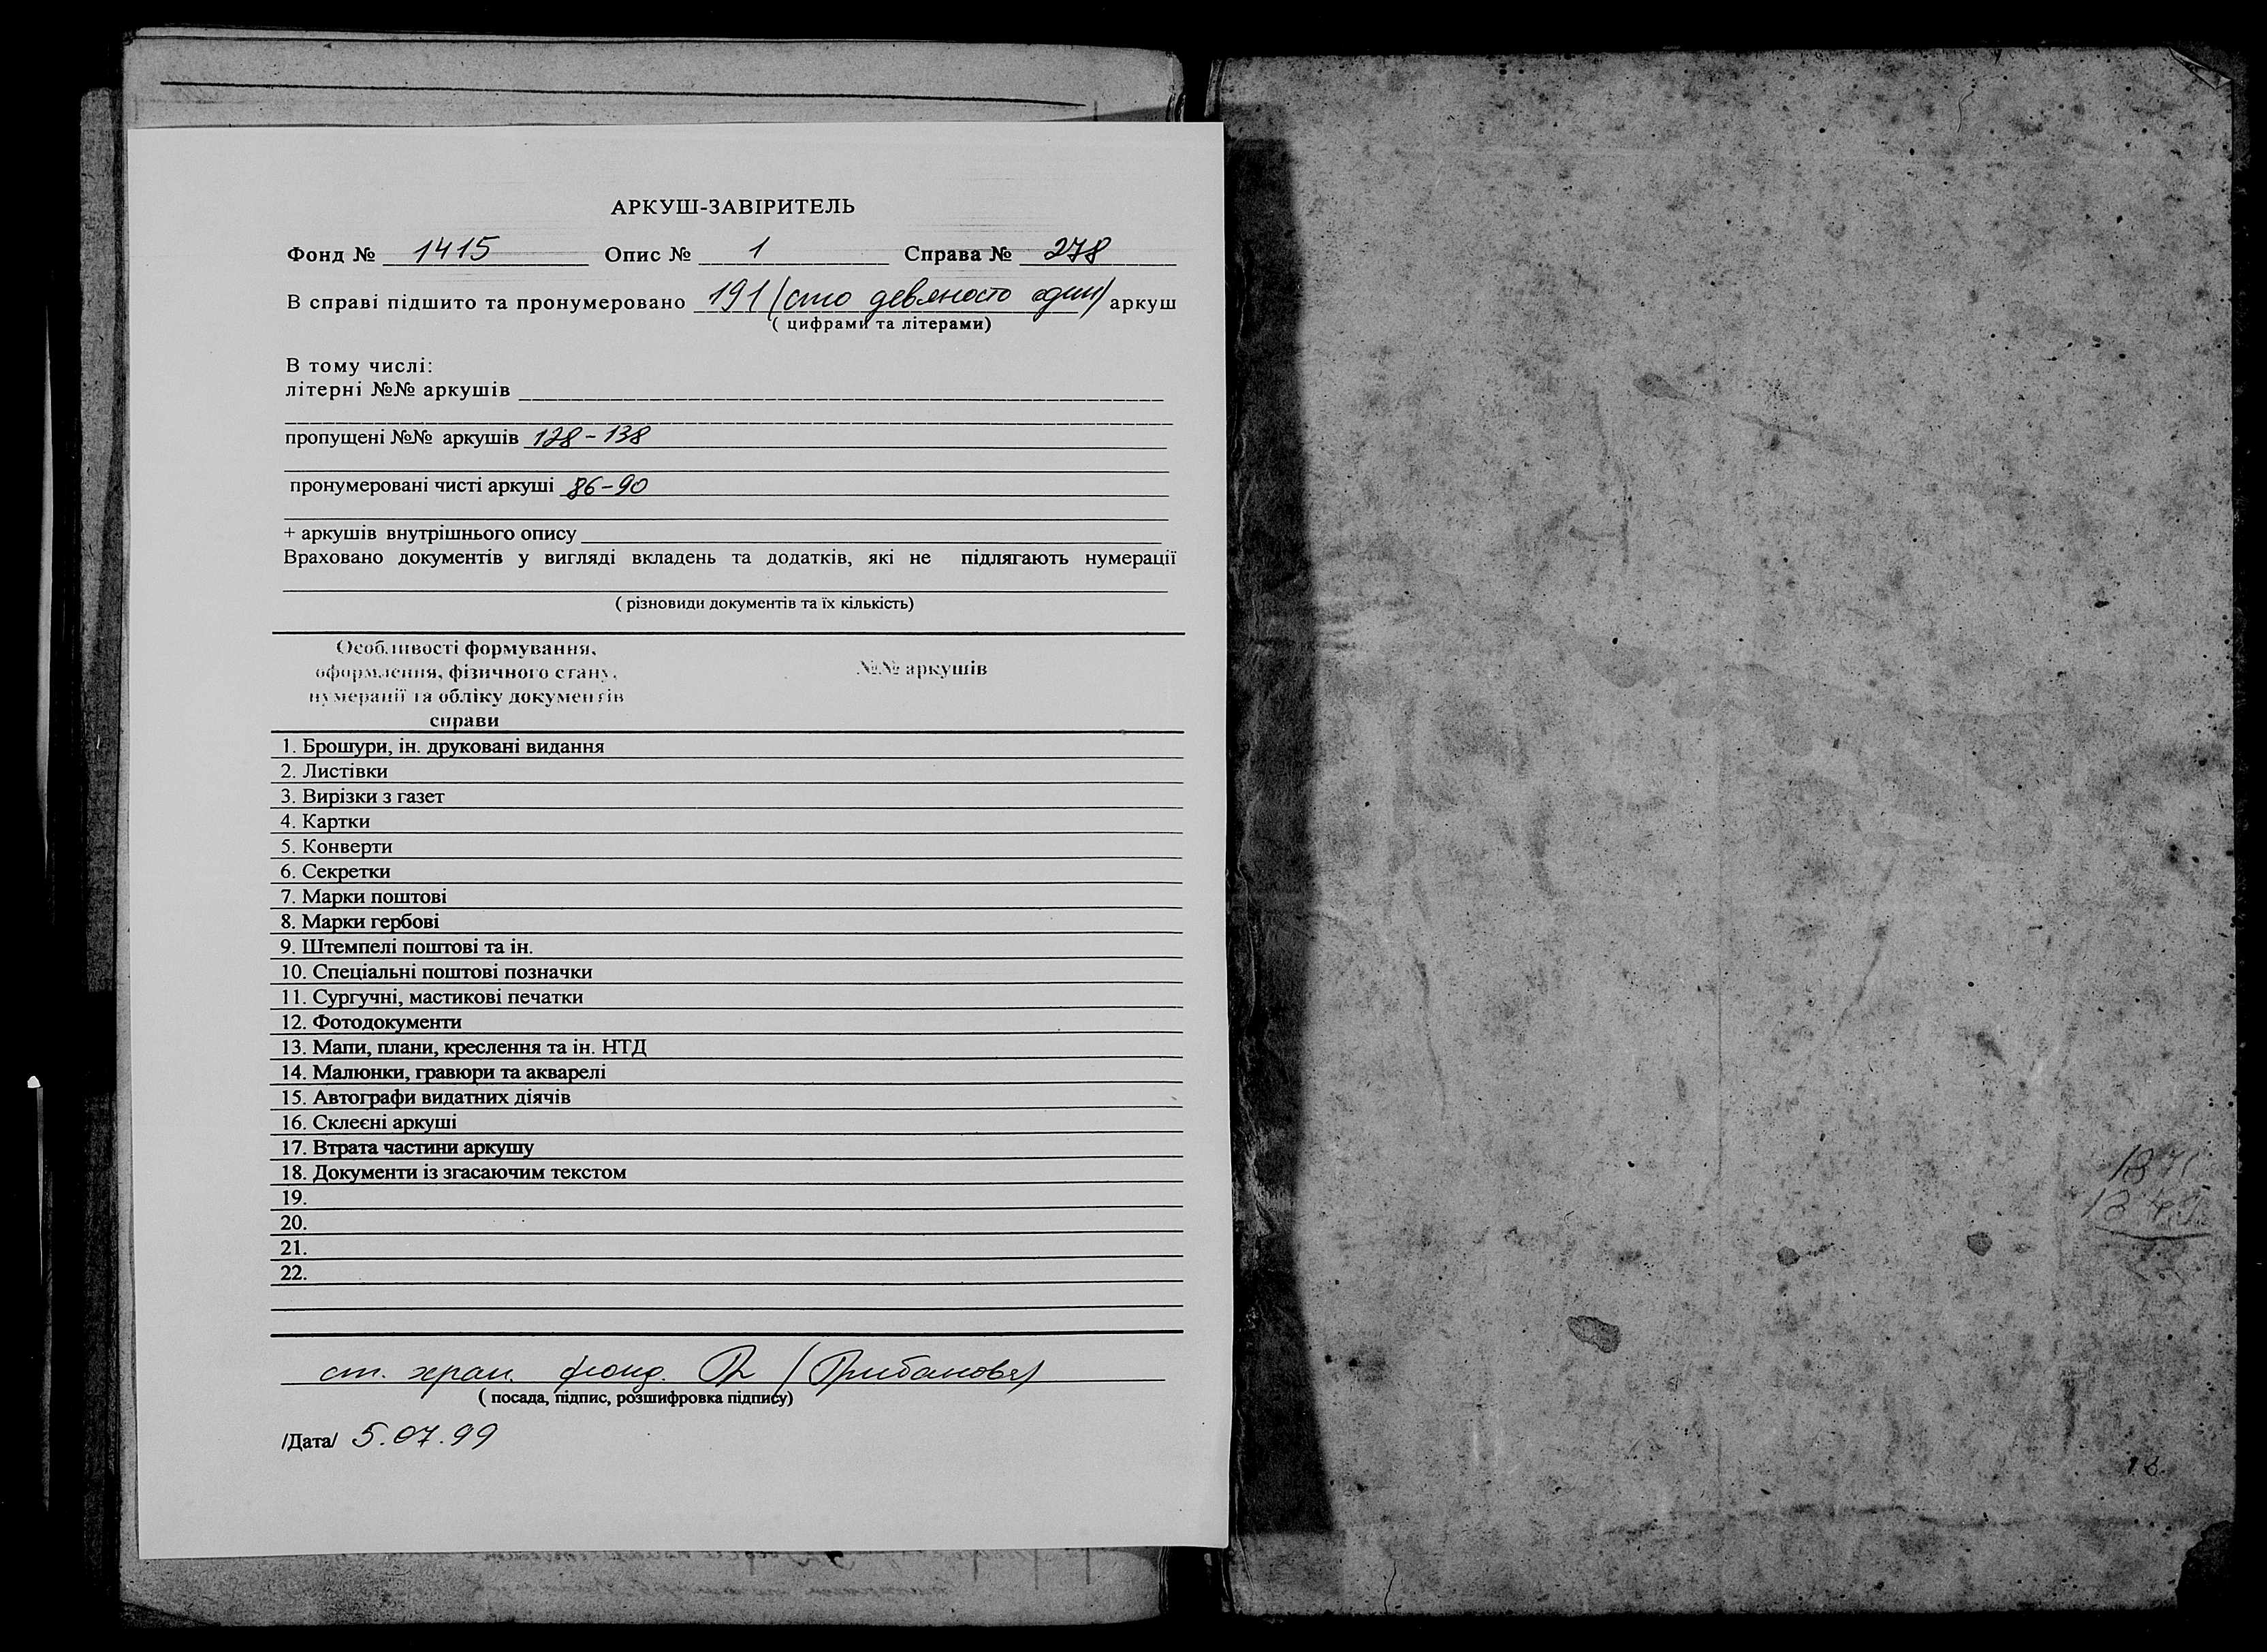 АРКУШ-ЗАВІРИТЕЛЬ
Фонд № 1415 Опис № 1 Справа № 278
В справі підшито та пронумеровано 191 (сто девяносто один) аркуш
( цифрами та літерами)
В тому числі:
літерні №№ аркушів
пропущені №№ аркушів 128-138
пронумеровані чисті аркуші 86-90
+ аркушів внутрішнього опису
Враховано документів у вигляді вкладень та додатків, які не підлягають нумерації
( різновиди документів та їх кількість)
Особливості формування,
оформлення, фізичного стану,
нумерації та обліку документів
справи
№№ аркушів
1. Брошури, ін. друковані видання
2. Листівки
3. Вирізки з газет
4. Картки
5. Конверти
6. Секретки
7. Марки поштові
8. Марки гербові
9. Штемпелі поштові та ін.
10. Спеціальні поштові позначки
11. Сургучні, мастикові печатки
12. Фотодокументи
13. Мапи, плани, креслення та ін. НТД
14. Малюнки, гравюри та акварелі
15. Автографи видатних діячів
16. Склеєні аркуші
17. Втрата частини аркушу
18. Документи із згасаючим текстом
19.
20.
21.
22.
ст. хран. фонд. (Грибанова)
( посада, підпис, розшифровка підпису)
/Дата/ 5.07.99